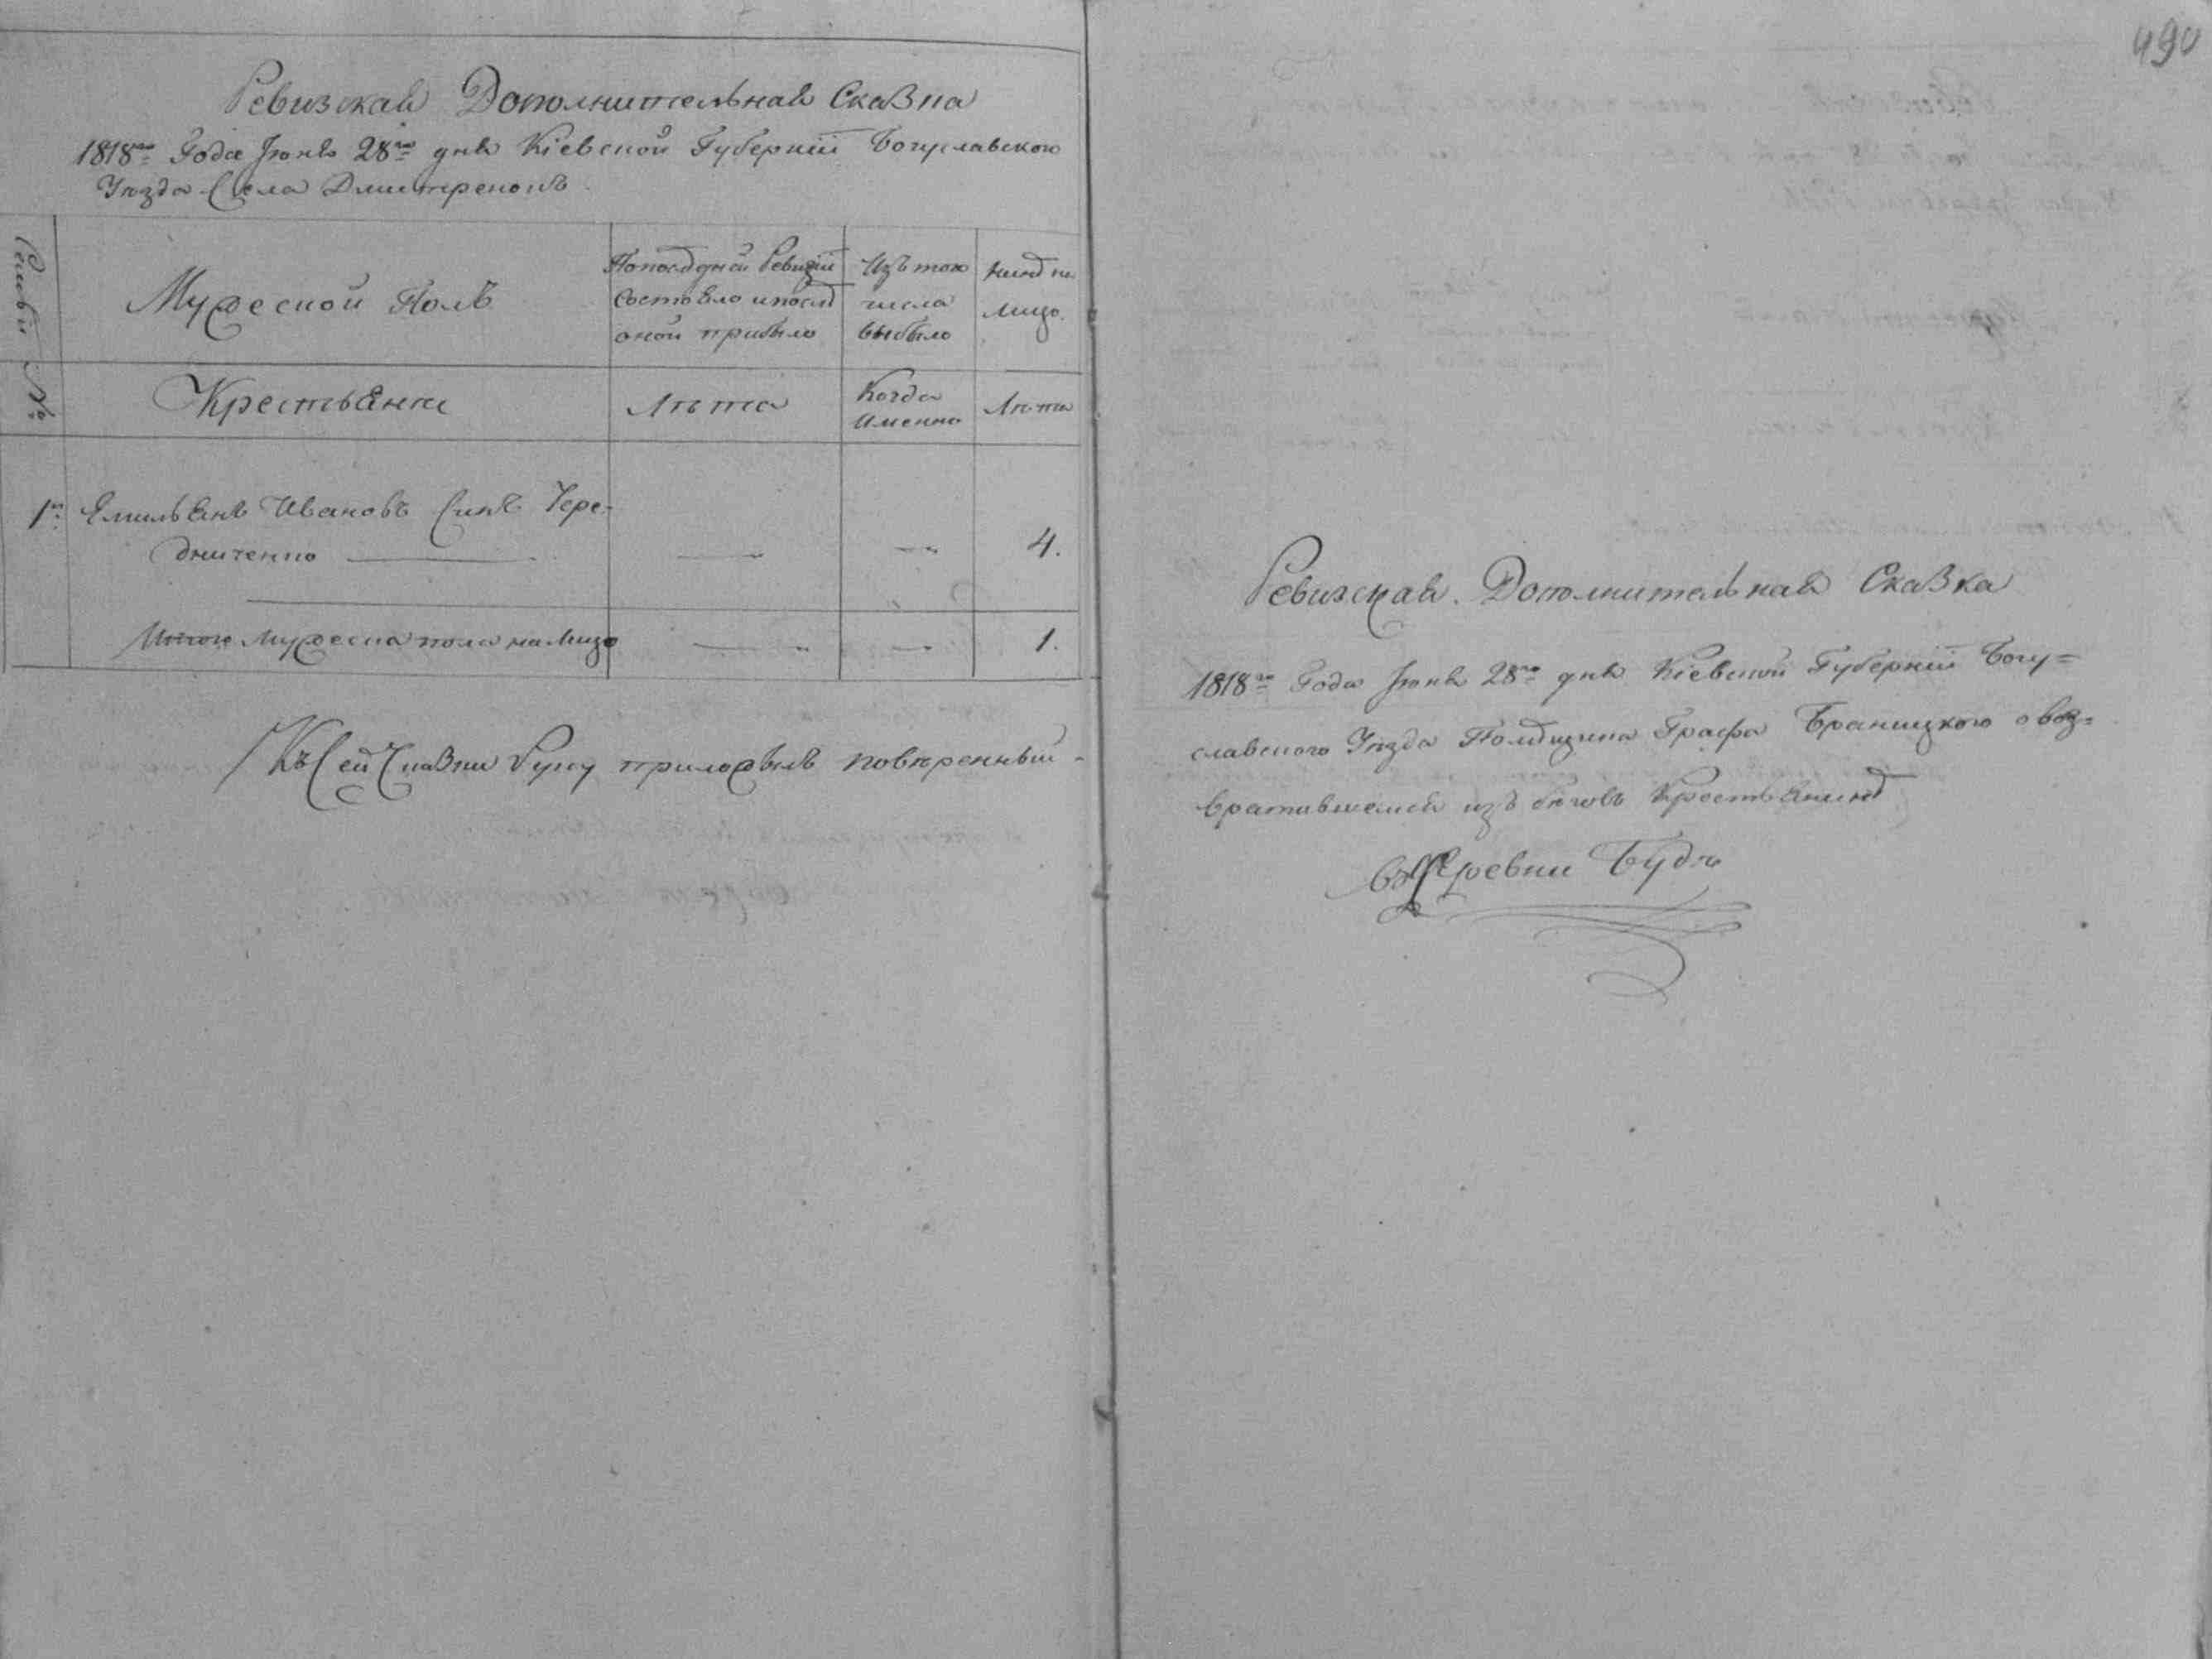 Ревизская Дополнительная Сказка
1818го Года Июня 28го дня Кіевской Губерніи Богуславского
Уѣзда Села Дмитренокъ
Семьи №
Мужеской Полъ
По последней Ревизіи
Состояло и послѣ
оной прибыло
Изъ того
числа
выбыло
Нынѣ на
лицо
Крестьяня
Лѣта
Когда
Именно
Лѣта
1й Емильянъ Ивановъ Синъ Чере-
дниченко
4.
Итого Мужеска пола на лицо
1.
Къ Сей Сказки Руку приложылъ повѣренный
490
Ревизская Дополнительная Сказка
1818го Года Июня 28го дня Кіевской Губерніи Богу=
славского Уѣзда Помѣщика Графа Браницкого о воз=
вратившемся изъ бѣговъ Крестьянинѣ
въ Деревни Будѣ